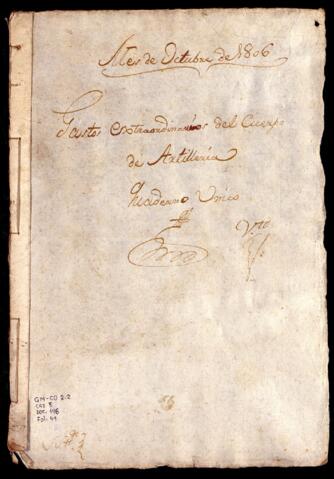 Mes de Octubre de 1806
Gastos extraordinarios del Cuerpo
de Artilleria
Quaderno Unico
GM-CO 2.2
CAJ 8
DOC. 496
Fol. 44